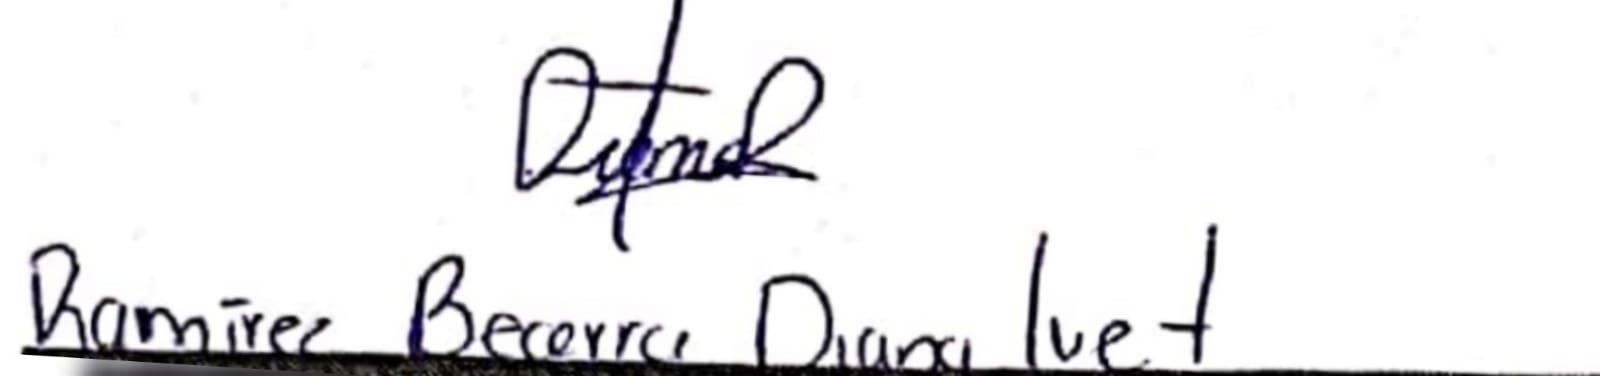 Ramirez Becerra Diana Ivet